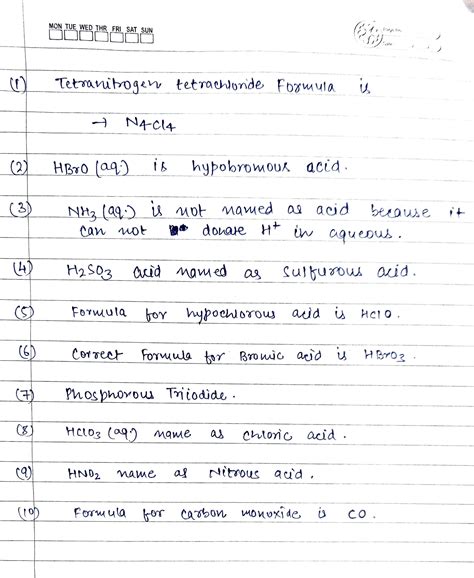 MON TUE WED THR FRI SAT SUN
(1) Tetranitrogen tetrachloride Formula is
→ N4Cl4
(2) HBrO (aq.) is hypobromous acid.
(3) NH3 (aq.) is not named as acid because it
can not donate H+ in aqueous.
(4) H2SO3 acid named as Sulfurous acid.
(5) Formula for hypochlorous acid is HClO.
(6) Correct Formula for Bromic acid is HBrO3.
(7) Phosphorous Triiodide.
(8) HClO3 (aq.) name as chloric acid.
(9) HNO2 name as Nitrous acid.
(10) Formula for carbon monoxide is CO.